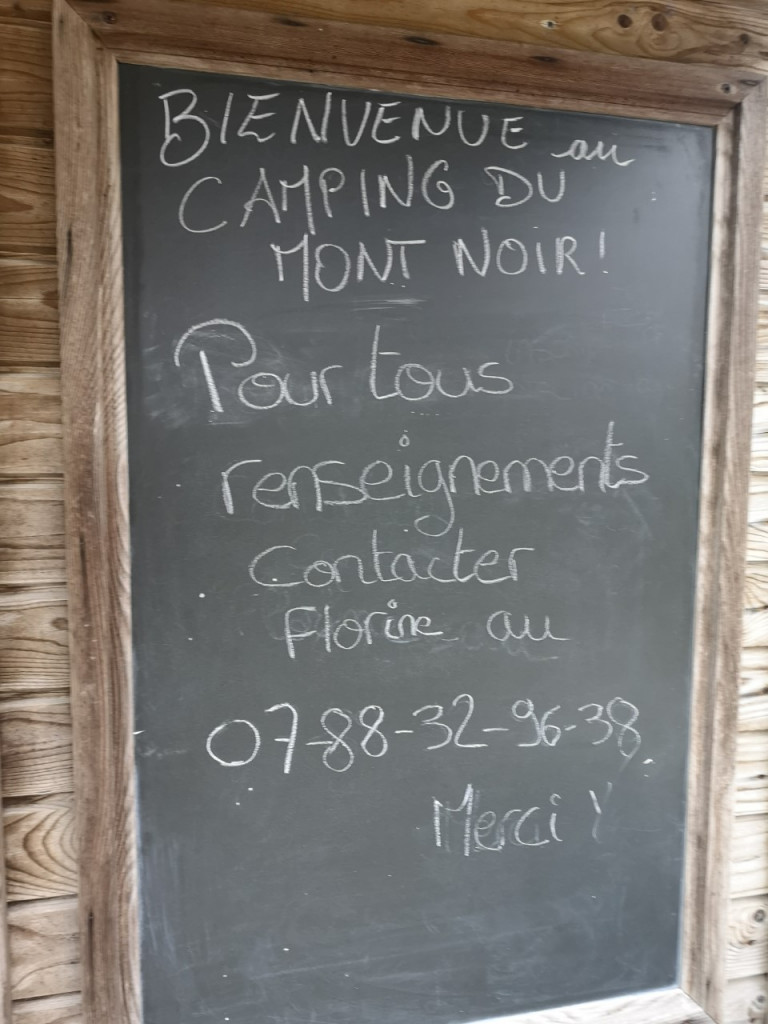 BIENVENUE au
CAMPING DU
MONT NOIR!
Pour tous
renseignements
Contacter
Florine au
07-88-32-96-38
Merci !